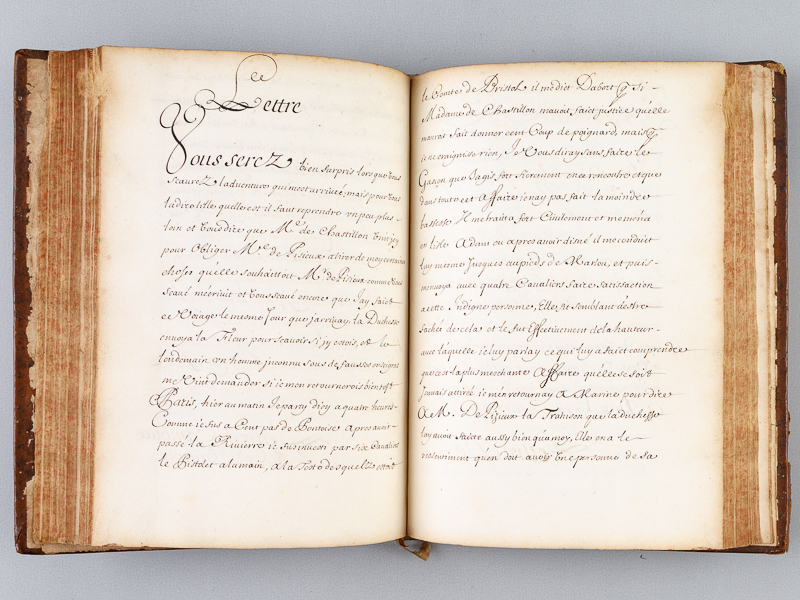 Lettre
Vous serez bien surpris lors que vous
scaurez ladventure qui mest arrivée, mais pour vous
la dire telle quelle est il faut reprendre un peu plus
loin et vous dire que Me. de Chastillon vint icy
pour obliger Me. de Pisieux a tirer de moy certaines
choses quelle souhaittoit Me. de Pisieux comme vous
scavé mécrivit et vous scavé encore que Jay fait
ce voiage le mesme Jour que jarrivay la Duchesse
envoya la Fleur pour scavoir si jy estois, et le
lendemain un homme jnconnu sous de fausses enseignes
me vint demander si ie men retournerois bientost
a Paris, hier au matin Je party dicy a quatre heures
Comme ie fus a Cent pas de Pontoise apres avoir
passé la Rivierre ie fus investi par six Cavaliers
le Pistolet a la main, a la teste desquelz estoit
le Comte de Bristol il me dict Dabort q. Si
Madame de Chastillon mavoit faict justice quelle
mauroit fait donner cent Coup de poignard, mais q.
ie ne craignisse rien, Je vous diray sans faire le
Gascon que Jagis fort fierement en ce rencontre et que
dans toute cet Affaire ie nay pas fait la moindre
bassesse Il me traita fort Civilement et me mena
et lisle Adam ou apres avoir disné il me conduit
luy mesme Jusques au pieds de Marlou, et puis
menvoya avec quatre Cavaliers faire satisfaction
a cette Indigne personne, Elle fit semblant destre
fachée de cela et le fut Effectivement de la hauteur
avec laquelle ie luy parlay ce qui luy a faict comprendre
que cest la plus mechante Affaire quelle se soit
Jamais attirée ie men retournay A Marine pour dire
A M. De Pizieux la Trahison que la duchesse
luy avoit faicte aussy bien qua moy, Elle en a le
ressentiment quen doit avoir une personne de sa